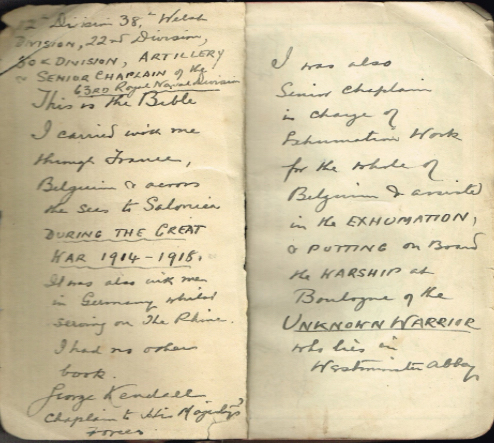 Division 38th Welsh
Division, 22nd Division,
60th DIVISION, ARTILLERY
& SENIOR CHAPLAIN of the
63RD Royal Naval Division
This is the Bible
I carried with me
through France,
Belgium & across
the sea to Salonica
DURING THE GREAT
WAR 1914-1918.
It was also with me
in Germany whilst
serving on The Rhine.
I had no other
book.
George Kendall
Chaplain to His Majesty's
Forces.
I was also
Senior Chaplain
in charge of
Exhumation Work
for the whole of
Belgium & assisted
in the EXHUMATION,
& PUTTING on Board
the WARSHIP at
Boulogne of the
UNKNOWN WARRIOR
who lies in
Westminster Abbey